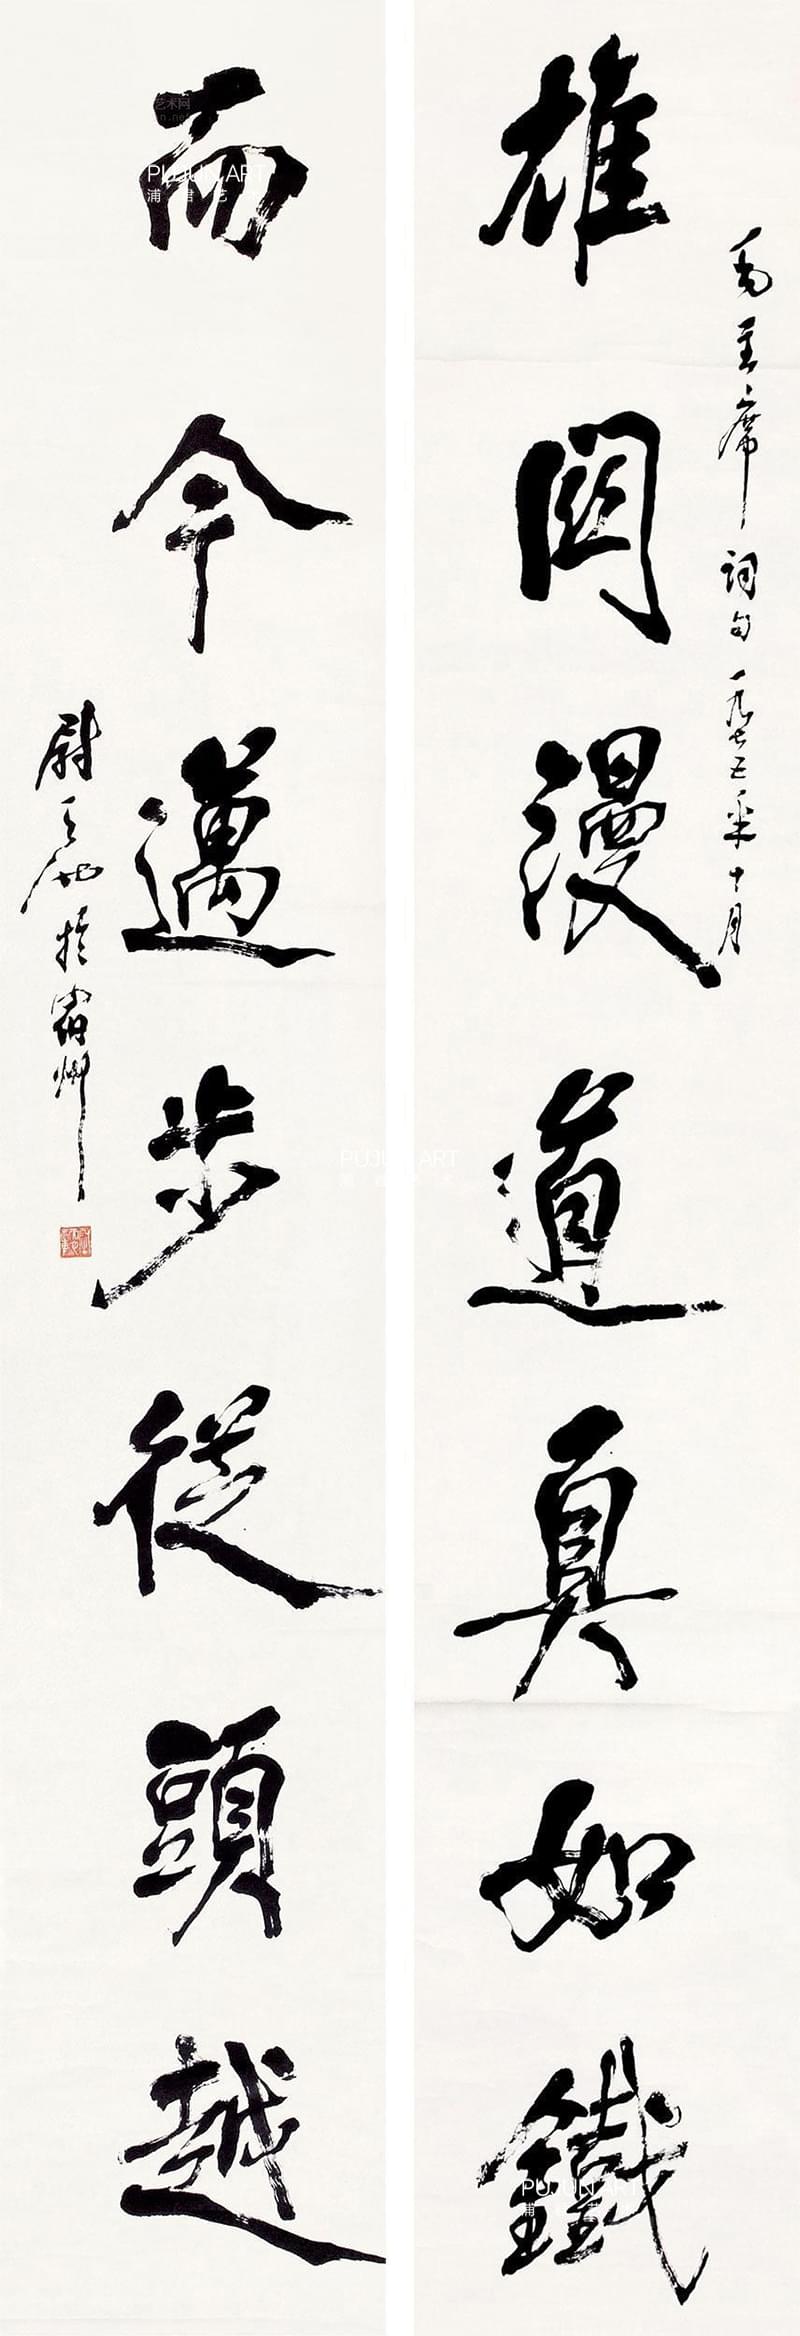 雄關漫道真如鐵
毛主席詞句 一九七五年十月
而今邁步從頭越
尉天池於宿州
艺术网
PUJUN ART
浦君艺
PUJUN ART
PUJUN ART
浦